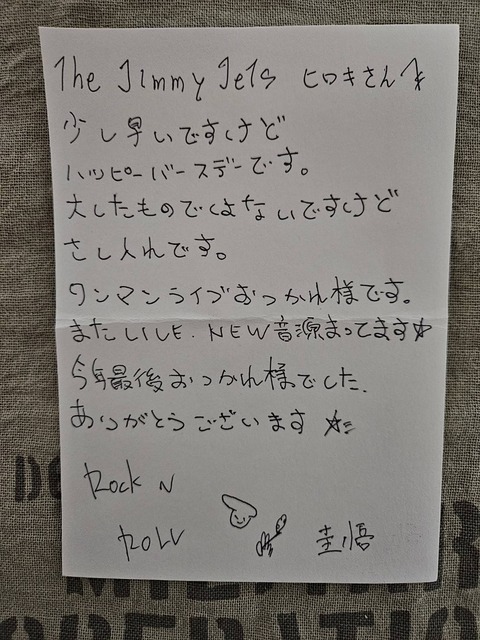 The Jimmy Jets ヒロキさん☆
少し早いですけど
ハッピーバースデーです。
大したものではないですけど
さし入れです。
ワンマンライブおつかれ様です。
またLIVE、NEW音源まってます☆
今年最後おつかれ様でした。
ありがとうございます ☆
Rock N
ROLL
圭悟